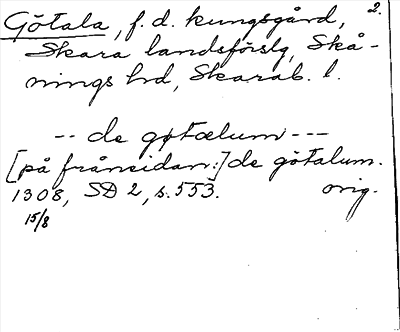 2.
Götala, f.d. kungsgård,
Skara landsförslg, Skå-
nings hd, Skarab. l.
-- de gøtælum ---
[på frånsidan:] de götalum.
1308, SD 2, s. 553. orig.
15/8